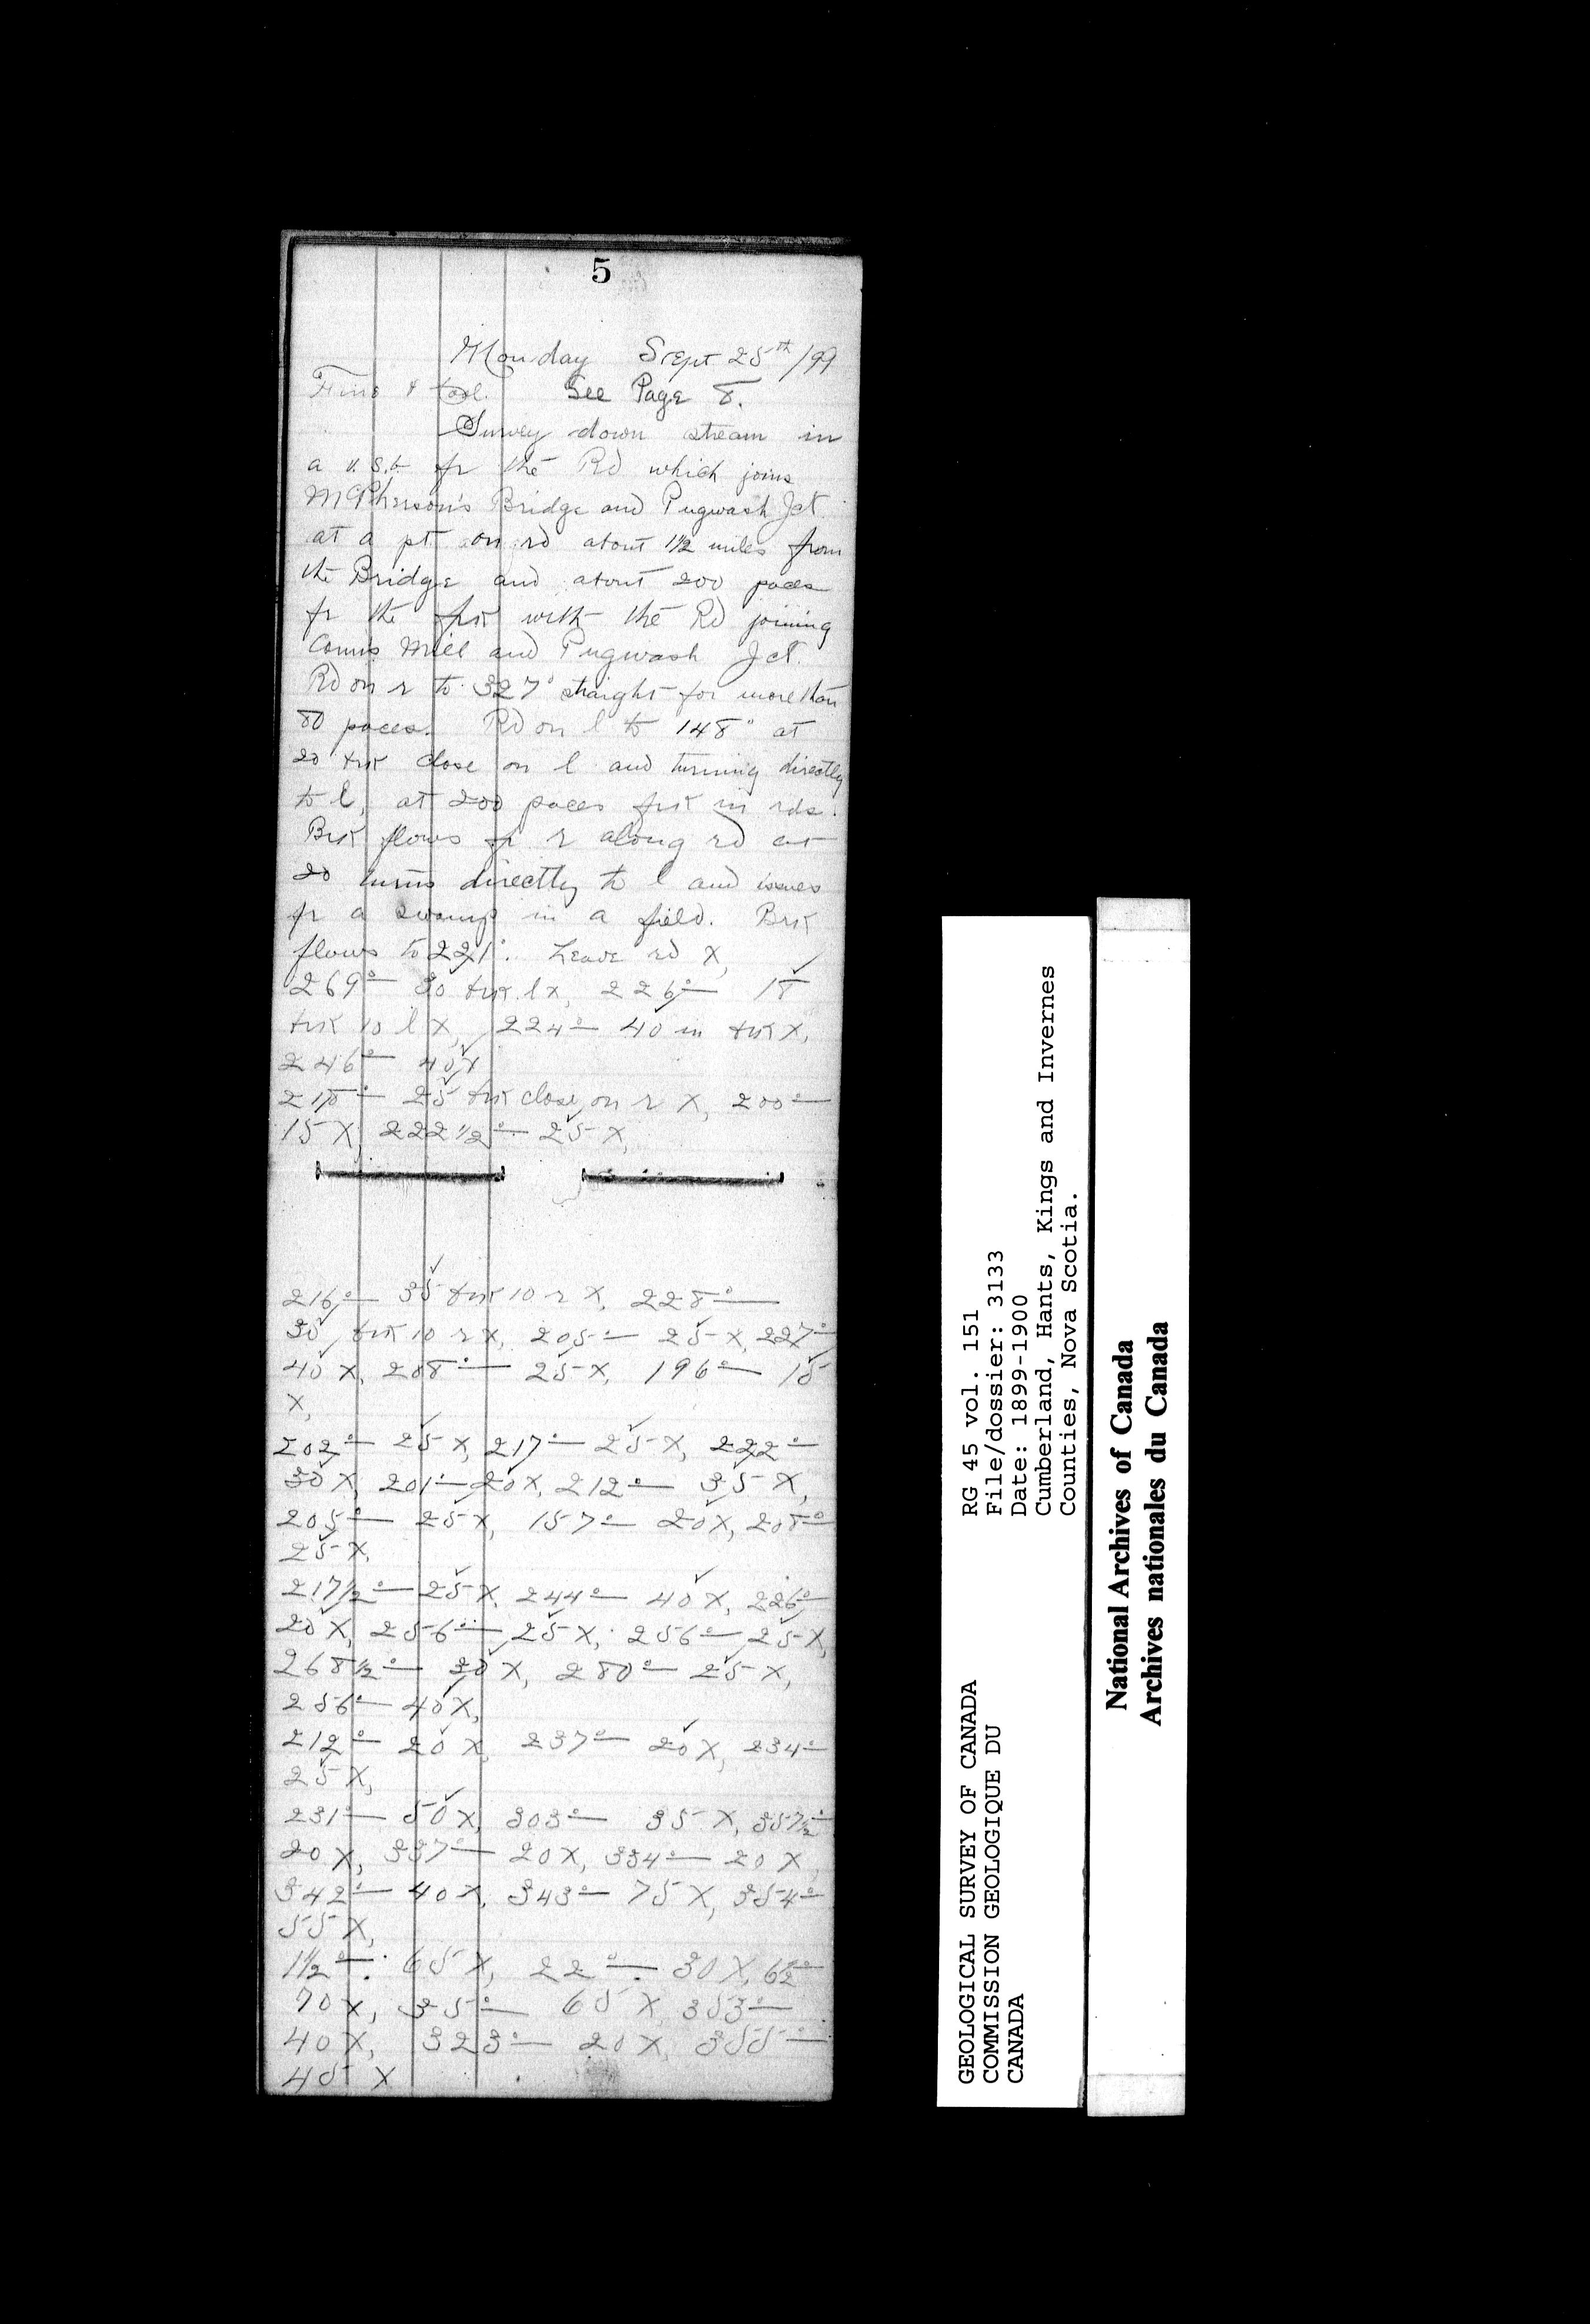 5
Monday Sept 25th/99
Fine & cool. See Page 8.
Survey down stream in
a v.s.b. fr the Rd which joins
McPherson's Bridge and Pugwash Jct.
at a pt on rd about 1½ miles from
the Bridge and about 200 paces
fr the frk with the Rd joining
Conns Mill and Pugwash Jct.
Rd on r to 327° straight for more than
80 paces. Rd on l to 148° at
20 trk close on l and turning directly
to l, at 200 paces frk in rds.
Brk flows fr r along rd at
20 turns directly to l and issues
fr a swamp in a field. Brk
flows to 221°. Leave rd X,
269°— 30 trk l X, 226°— 18
trk 10 l X, 224°— 40 in trk X,
246°— 40 X
218°— 25 trk close on r X, 200°—
15 X, 222½°— 25 X,
216°— 35 trk 10 r X, 228°—
30 trk 10 r X, 205°— 25 X, 227°—
40 X, 208°— 25 X, 196°— 15
X,
202°— 25 X, 217°— 25 X, 222°—
30 X, 201°— 20 X, 212°— 35 X,
205°— 25 X, 157°— 20 X, 208°—
25 X,
217½°— 25 X, 244°— 40 X, 226°—
20 X, 256°— 25 X, 256°— 25 X,
268½°— 20 X, 280°— 25 X,
256°— 40 X,
212°— 20 X, 237°— 20 X, 234°—
25 X,
231°— 50 X, 303°— 35 X, 357½°—
20 X, 337°— 20 X, 334°— 20 X
342°— 40 X, 343°— 75 X, 354°—
55 X,
1½°— 65 X, 22°— 30 X, 6½°—
70 X, 35°— 65 X, 353°—
40 X, 323°— 20 X, 355°—
45 X
GEOLOGICAL SURVEY OF CANADA
COMMISSION GEOLOGIQUE DU
CANADA
RG 45 vol. 151
File/dossier: 3133
Date: 1899-1900
Cumberland, Hants, Kings and Invernes
Counties, Nova Scotia.
National Archives of Canada
Archives nationales du Canada